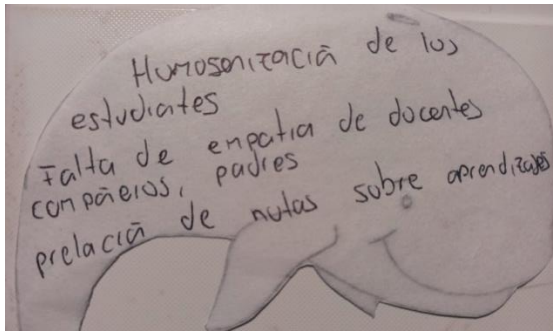 Humosenización de los
estudiantes
Falta de empatia de docentes
compañeros, padres
prelación de notas sobre aprendizajes